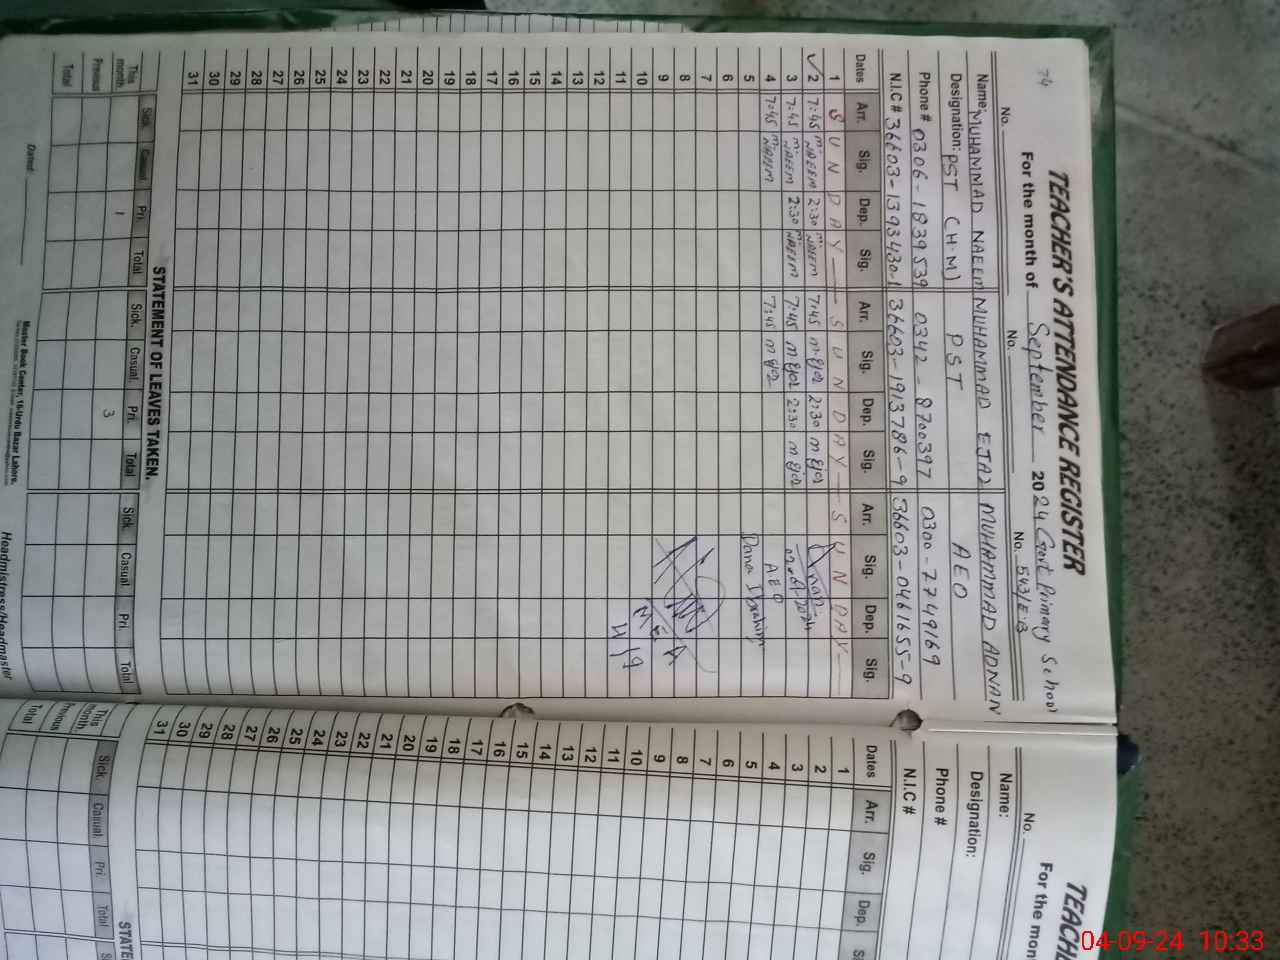 74
TEACHER'S ATTENDANCE REGISTER
For the month of September 2024 Govt Primary School
No. No. No. 543/E.B
Name: MUHAMMAD NAEEM MUHAMMAD EJAZ MUHAMMAD ADNAN
Designation: PST (H.M) PST AEO
Phone # 0306-1839539 0342-8700397 0300-7749169
N.I.C # 36603-1393430-1 36603-1913786-9 36603-0461655-9
Dates Arr. Sig. Dep. Sig. Arr. Sig. Dep. Sig. Arr. Sig. Dep. Sig.
1 SUNDAY — SUNDAY — SUNDAY —
2 7:45 M.NAEEM 2:30 M.NAEEM 7:45 M Ejaz 2:30 M Ejaz
3 7:45 M.NAEEM 2:30 M.NAEEM 7:45 M Ejaz 2:30 M Ejaz
4 7:45 M.NAEEM 7:45 M Ejaz AEO
5 Ibrahim
6
7
8
9 MEA
10
11 4/9
12
13
14
15
16
17
18
19
20
21
22
23
24
25
26
27
28
29
30
31
STATEMENT OF LEAVES TAKEN.
Sick. Casual Pri. Total Sick. Casual. Pri. Total Sick. Casual Pri Total
This month 1 3
Previous
Total
Dated:
Master Book Center, 16-Urdu Bazar Lahore.
Headmistress/Headmaster
TEACHE
For the mon
No.
Name:
Designation:
Phone #
N.I.C #
Dates Arr. Sig. Dep. Si
1
2
3
4
5
6
7
8
9
10
11
12
13
14
15
16
17
18
19
20
21
22
23
24
25
26
27
28
29
30
31
STATE
Sick. Casual. Pri. Total
This month
Previous
Total
04-09-24 10:33